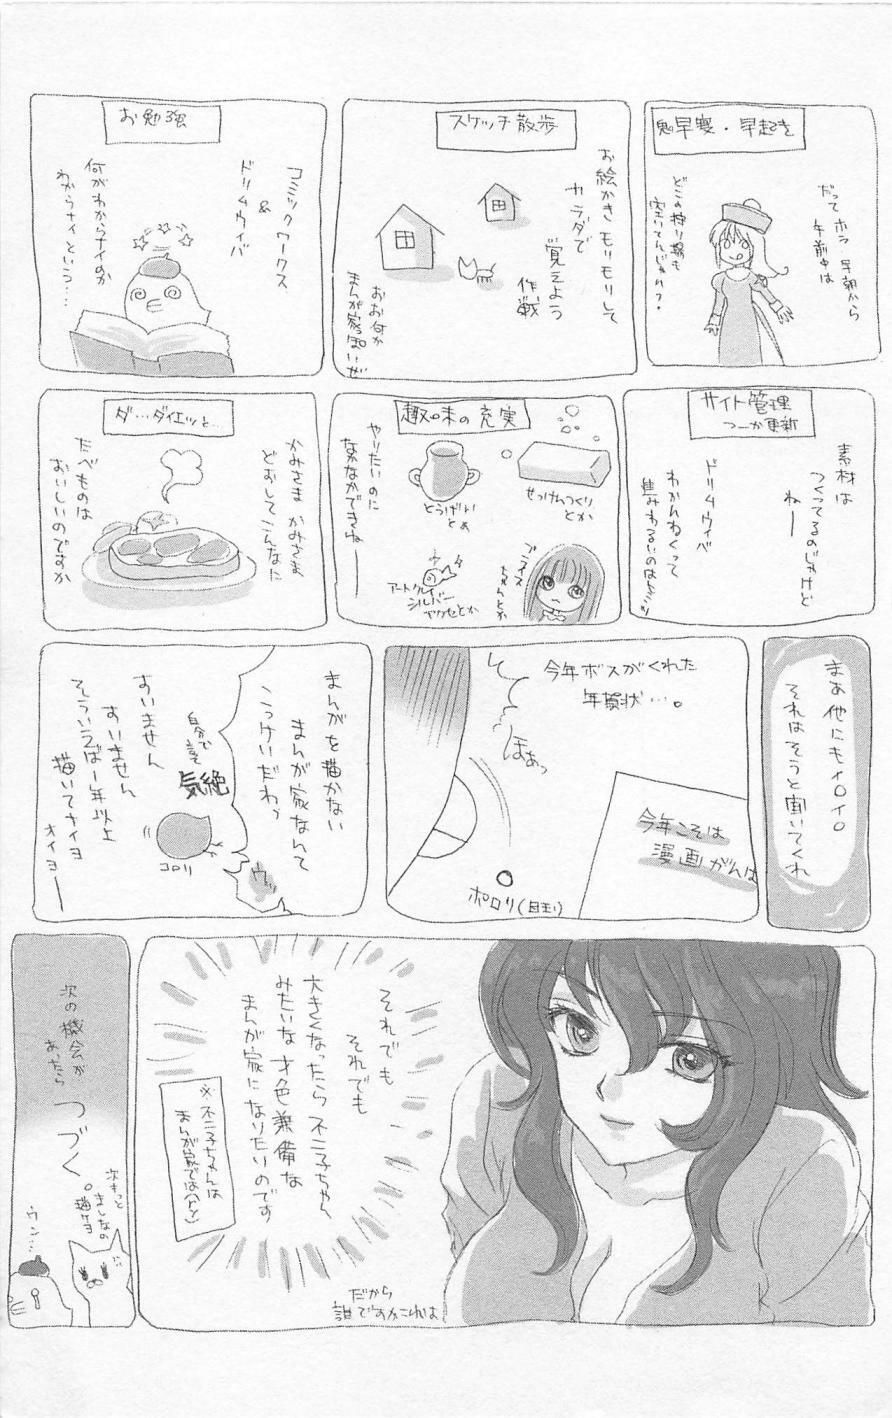 早寝・早起き
だって ホラ 早朝から
午前中は
どこの狩り場も
空いてんじゃん?
スケッチ散歩
お絵かき モリモリして
カラダで
覚えよう
作戦
おお何か
まんが家っぽいぜ
お勉強
コミックワークス
&
ドリムウィバ
何がわからナイのか
わからナイという…
サイト管理
つーか更新
素材は
つくってるのじゃけど
ねー
ドリムウィバ
わかんねくって
趣味の充実
せっけんつくり
とか
とうげい
とか
やりたいのに
なかなかできねーー
アートクレイ
シルバー
アクセとか
ちゃんとか
ダ…ダイエッと…
かみさま かみさま
どおしてこんなに
たべものは
おいしいのですか
まあ 他にもイロイロ
それはそうと聞いてくれ
今年ボスがくれた
年賀状…。
ほぁっ
今年こそは
漫画がんば
ポロリ(目玉)
まんがを描かない
まんが家なんて
こっけいだわっ
ウッ
自分で言って
気絶
コロリ
すいません
すいません
そういえば1年以上
描いてナイヨ
オイヨー
それでも
それでも
大きくなったら 不二子ちゃん
みたいな 才色兼備な
まんが家に なりたいのです
※不二子ちゃんは
まんが家では
だから
誰ですかこれは
次の機会が
あったら
つづく
次もっと
ましなの
描ケヨ
ウン…